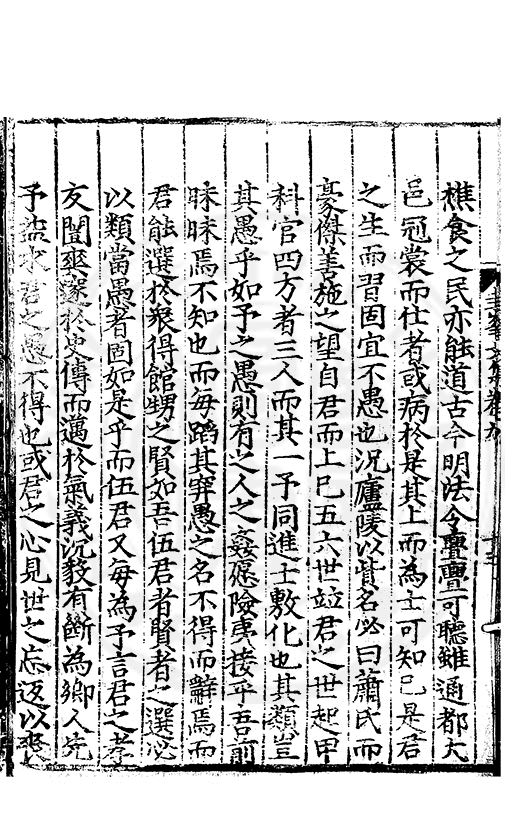 樵食之民亦能道古今明法令亹亹可聽雖通都大
邑冠裳而仕者或病於是其上而為士可知已是君
之生而習固宜不愚也況廬陵以貲名必曰蕭氏而
豪傑善施之望自君而上已五六世竝君之世起甲
科官四方者三人而其一予同進士敷化也其類豈
其愚乎如予之愚則有之人之姦慝險夷接乎吾前
昧昧焉不知也而每蹈其穽愚之名不得而辭焉而
君能選於衆得館甥之賢如吾伍君者賢者之選必
以類當愚者固如是乎而伍君又每為予言君之孝
友闓爽邃於史傳而邁於氣義沉毅有斷為鄉人先
予益求君之愚不得也或君之心見世之忘返以爽
圭峯文集卷九